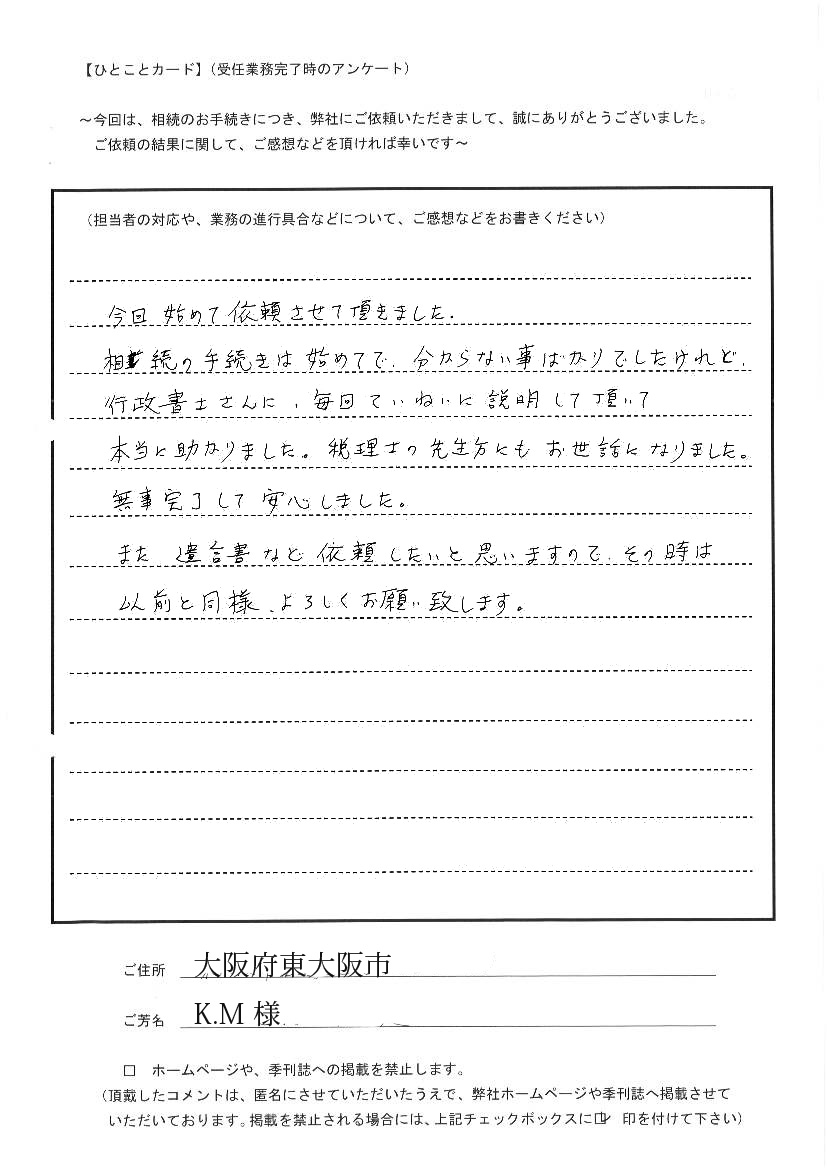 【ひとことカード】（受任業務完了時のアンケート）
～今回は、相続のお手続きにつき、弊社にご依頼いただきまして、誠にありがとうございました。
ご依頼の結果に関して、ご感想などを頂ければ幸いです～
（担当者の対応や、業務の進行具合などについて、ご感想などをお書きください）
今回 始めて依頼させて頂きました.
相続の手続きは始めてで、分からない事ばかりでしたけれど、
行政書士さんに、毎回ていねいに説明して頂いて
本当に助かりました。税理士の先生方にもお世話になりました。
無事完了して安心しました。
また 遺言書など依頼したいと思いますので、その時は
以前と同様、よろしくお願い致します。
ご住所 大阪府東大阪市
ご芳名 K.M 様
□ ホームページや、季刊誌への掲載を禁止します。
（頂戴したコメントは、匿名にさせていただいたうえで、弊社ホームページや季刊誌へ掲載させて
いただいております。掲載を禁止される場合には、上記チェックボックスに☑ 印を付けて下さい）